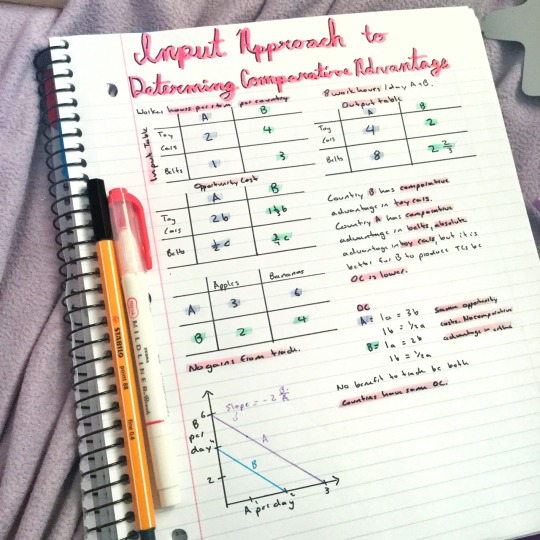 Input Approach to
Determing Comparative Advantage
Worker hours per item per country
8 work hours / day A+B.
Input Table
A B
Toy Cars 2 4
Belts 1 3
Output table
A B
Toy Cars 4 2
Belts 8 2 2/3
Opportunity Cost
A B
Toy Cars 2b 1⅓b
Belts ½c ¾c
Country B has comparative
advantage in toy cars.
Country A has comparative
advantage in belts, absolute
advantage in toy cars, but it is
better for B to produce TCs bc
OC is lower.
Apples Bananas
A 3 6
B 2 4
No gains from trade.
OC
A = 1a = 3b
1b = 1/2a
B = 1a = 2b
1b = 1/2a
Same opportunity
costs. No comparative
advantage in either
No benefit to trade bc both
countries have same OC.
Slope = -2 B/A
6
B
per
day
2
A
B
1 2 3
A per day
STABILO
point 88
fine 0,4
MILDLINER